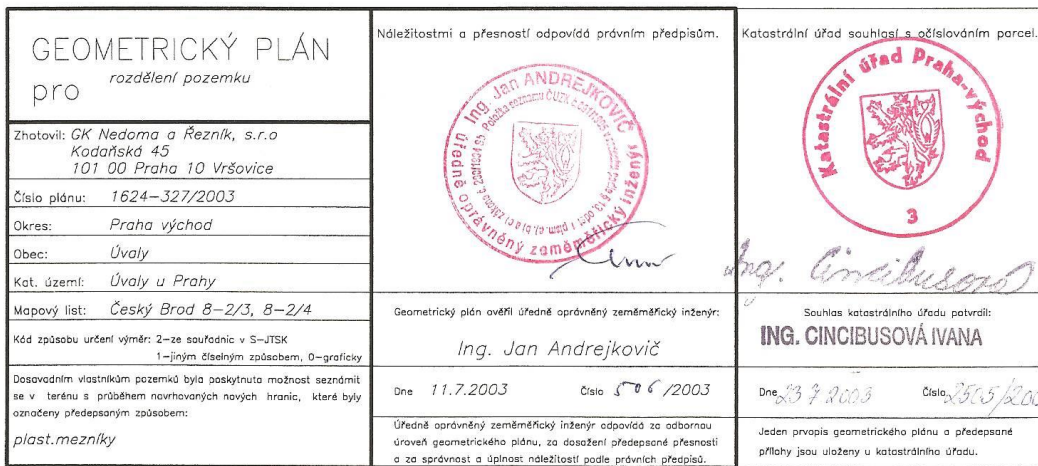 GEOMETRICKÝ PLÁN
pro rozdělení pozemku
Zhotovil: GK Nedoma a Řezník, s.r.o
Kodaňská 45
101 00 Praha 10 Vršovice
Číslo plánu: 1624-327/2003
Okres: Praha východ
Obec: Úvaly
Kat. území: Úvaly u Prahy
Mapový list: Český Brod 8-2/3, 8-2/4
Kód způsobu určení výměr: 2-ze souřadnic v S-JTSK
1-jiným číselným způsobem, 0-graficky
Dosavadním vlastníkům pozemků byla poskytnuta možnost seznámit
se v terénu s průběhem navrhovaných nových hranic, které byly
označeny předepsaným způsobem:
plast.mezníky
Náležitostmi a přesností odpovídá právním předpisům.
Ing. Jan ANDREJKOVIČ
úředně oprávněný zeměměřický inženýr
Geometrický plán ověřil úředně oprávněný zeměměřický inženýr:
Ing. Jan Andrejkovič
Dne 11.7.2003 Číslo 506/2003
Úředně oprávněný zeměměřický inženýr odpovídá za odbornou
úroveň geometrického plánu, za dosažení předepsané přesnosti
a za správnost a úplnost náležitostí podle právních předpisů.
Katastrální úřad souhlasí s očíslováním parcel.
Katastrální úřad Praha-východ
3
Ing. Cincibusová
Souhlas katastrálního úřadu potvrdil:
ING. CINCIBUSOVÁ IVANA
Dne 23 7 2003 Číslo 2505/200
Jeden prvopis geometrického plánu a předepsané
přílohy jsou uloženy u katastrálního úřadu.